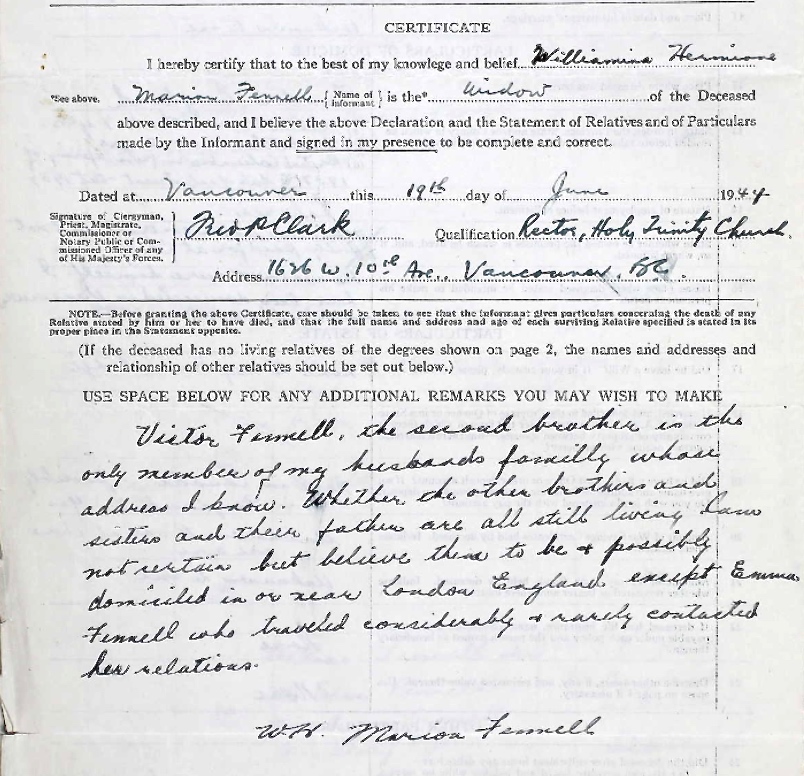 CERTIFICATE
I hereby certify that to the best of my knowlege and belief Williamina Hermione
*See above. Marion Fennell {Name of Informant} is the* Widow of the Deceased
above described, and I believe the above Declaration and the Statement of Relatives and of Particulars
made by the Informant and signed in my presence to be complete and correct.
Dated at Vancouver this 19th day of June 1944
Signature of Clergyman,
Priest, Magistrate,
Commissioner or
Notary Public or Com-
missioned Officer of any
of His Majesty's Forces.
Clark Qualification Rector, Holy Trinity Church.
Address 1626 W. 10th Ave., Vancouver, BC.
NOTE.—Before granting the above Certificate, care should be taken to see that the informant gives particulars concerning the death of any
Relative stated by him or her to have died, and that the full name and address and age of each surviving Relative specified is stated in its
proper place in the Statement opposite.
(If the deceased has no living relatives of the degrees shown on page 2, the names and addresses and
relationship of other relatives should be set out below.)
USE SPACE BELOW FOR ANY ADDITIONAL REMARKS YOU MAY WISH TO MAKE
Victor Fennell, the second brother is the
only member of my husbands familly whose
address I know. Whether the other brothers and
sisters and their father are all still living I am
not certain but believe them to be & possibly
domiciled in or near London England except Emma
Fennell who traveled considerably & rarely contacted
her relations.
W.H. Marion Fennell